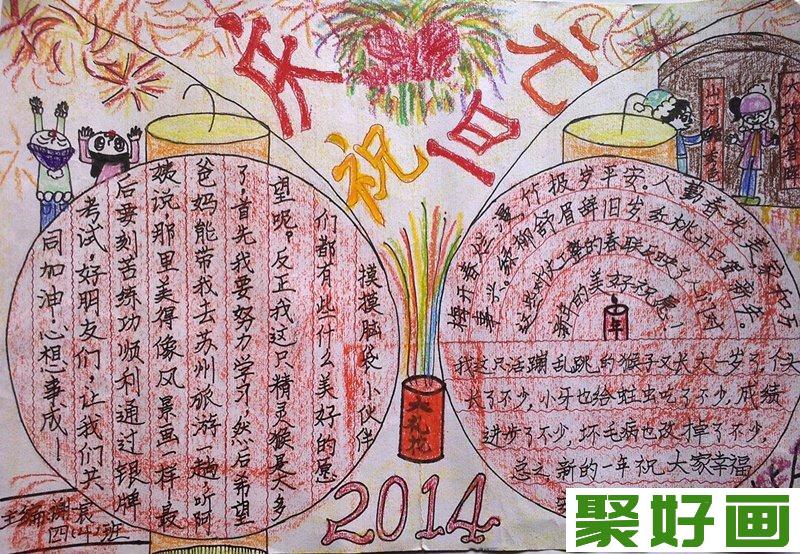 庆祝元旦
摸摸脑袋小伙伴
们都有些什么美好的愿
望呢。反正我这只精灵猴是太多
了,首先我要努力学习,然后希望
爸妈能带我去苏州旅游一趟,听阿
姨说,那里美得像风景画一样,最
后要刻苦练功顺利通过银牌
考试,好朋友们,让我们共
同加油心想事成!
竹报岁平安。人勤春光美家和万
事兴。绿柳舒眉辞旧岁,红桃开口贺新年。
这些对仗工整的春联反映了人们对
新年的美好祝愿!
年
我这只活蹦乱跳的猴子又长大一岁了,个头
长了不少,小牙也给蛀虫吃了不少,成绩
进步了不少,坏毛病也改掉了不少,
总之新的一年祝大家幸福
大礼花
2014
主编:谢
班
聚好画